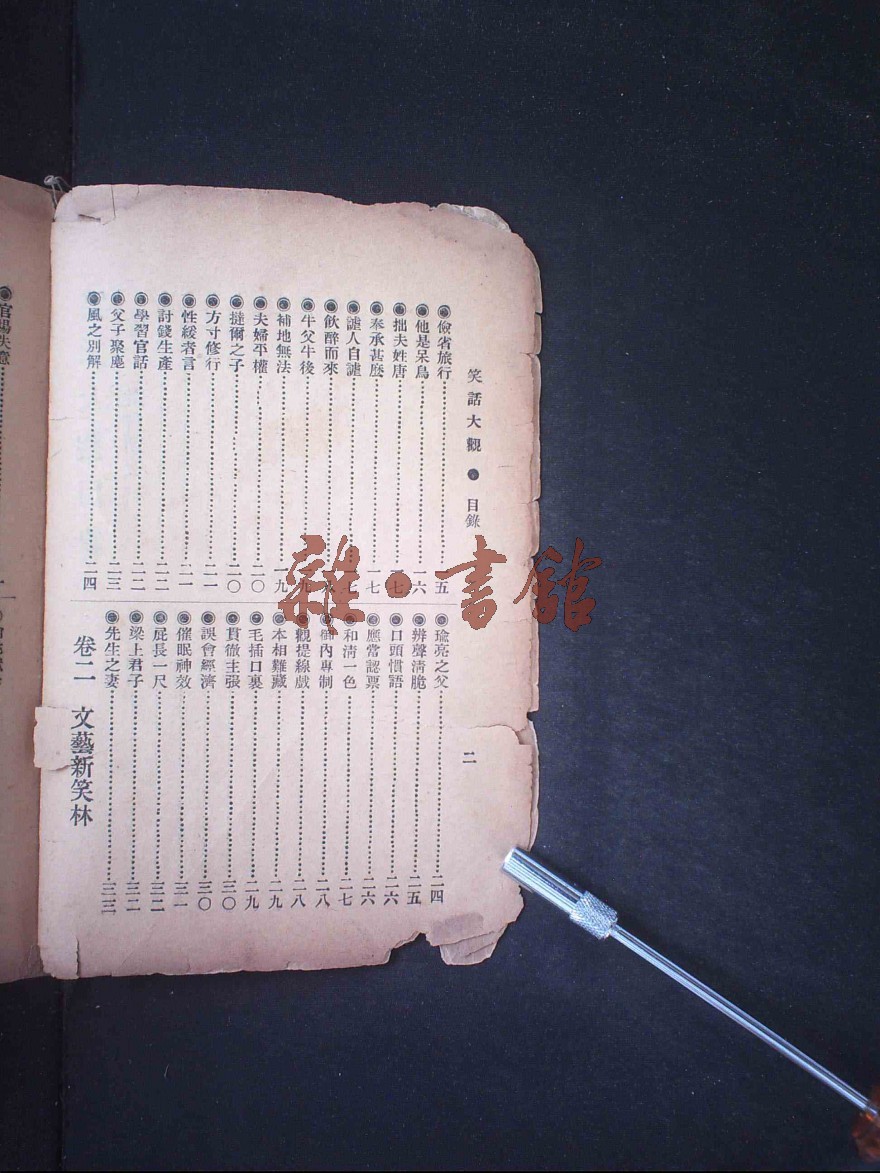 笑話大觀 ● 目錄 二
◉儉省旅行……一五
◉他是呆鳥……一六
◉拙夫姓唐……一七
◉奉承甚麼……一七
◉謔人自謔……一七
◉飲醉而來
◉牛父牛後……一九
◉補地無法……一九
◉夫婦平權……二〇
◉撻爾之子……二〇
◉方寸修行……二一
◉性緩者言……二一
◉討錢生產……二二
◉學習官話……二二
◉父子聚麀……二三
◉風之別解……二四
◉瑜亮之父……二四
◉辨聲清脆……二五
◉口頭慣語……二六
◉應當認票……二六
◉和清一色……二七
◉御內專制……二八
◉觀提線戲……二八
◉本相難藏……二九
◉毛插口裏……二九
◉貫徹主張……三〇
◉誤會經濟……三〇
◉催眠神效……三一
◉屁長一尺……三二
◉梁上君子……三二
◉先生之妻……三三
卷二 文藝新笑林
◉官場失意
雜·書館